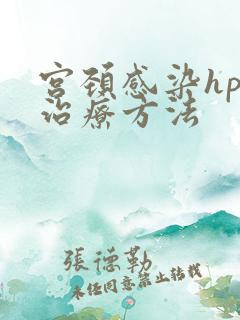 宫颈感染hp
治療方法
張德勒
未经同意禁止转载